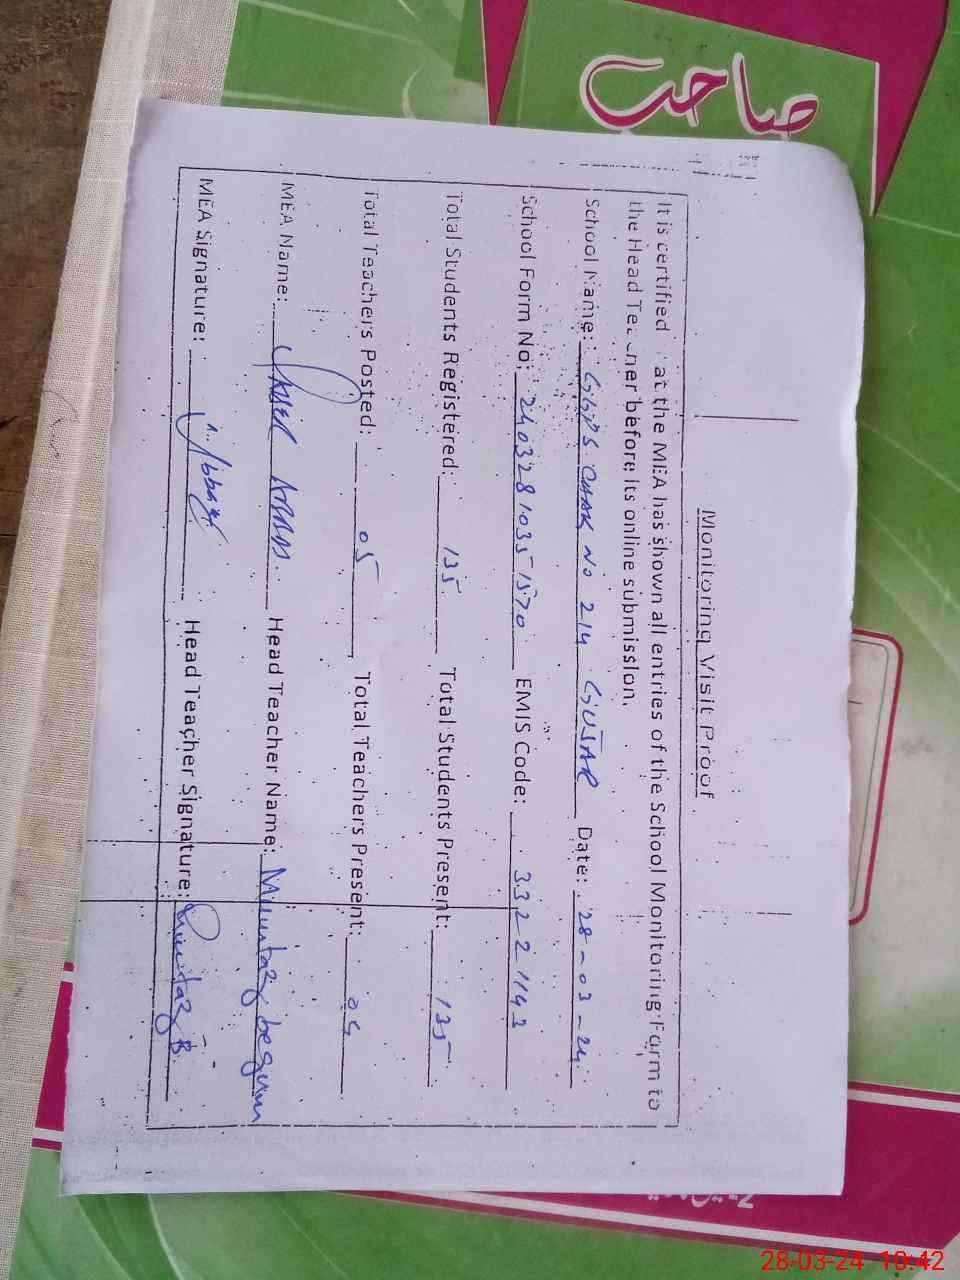 صاحب
Monitoring Visit Proof
It is certified at the MEA has shown all entries of the School Monitoring Farm to
the Head Teacher before its online submission.
School Name: GGPS. CHAK NO 214 GUJAR Date: 28-03-24
School Form No: 24032810351570 EMIS Code: 33221143
Total Students Registered: 135 Total Students Present: 135
Total Teachers Posted: 05 Total Teachers Present: 04
MEA Name: ABBAS. Head Teacher Name: Mumtaz begum
MEA Signature: Abbas Head Teacher Signature: Mumtaz B
28-03-24 10:42